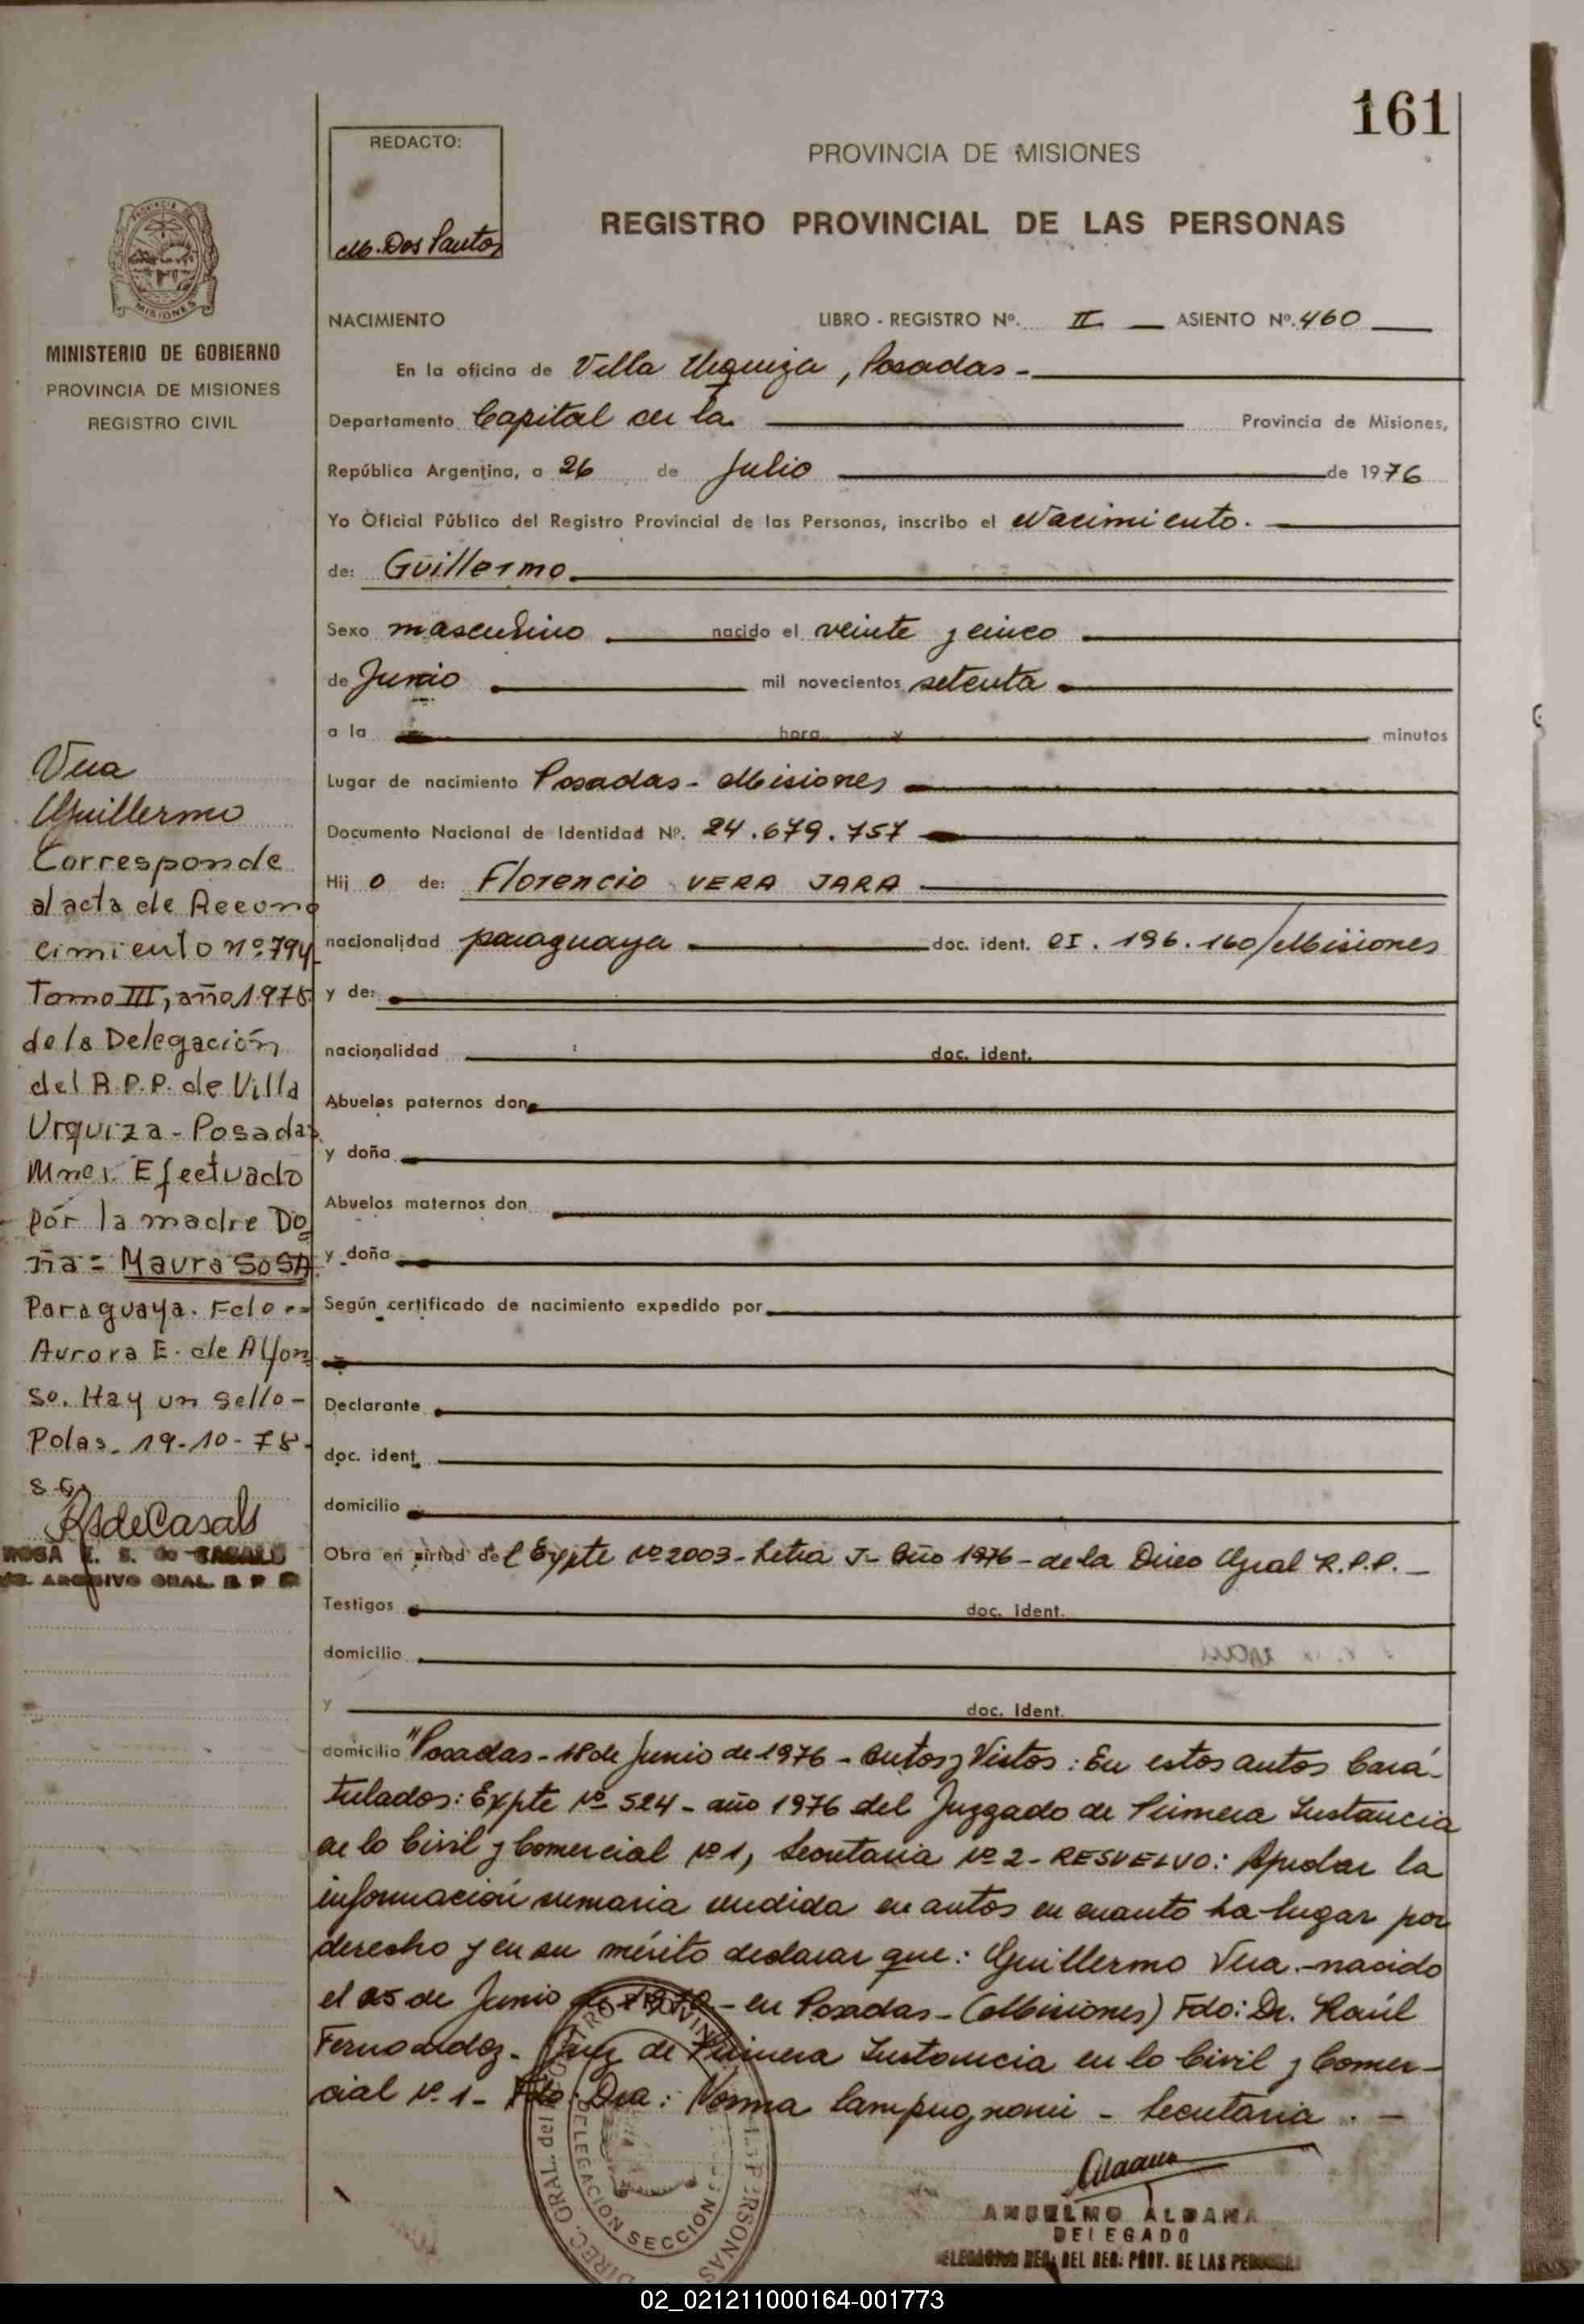 161
REDACTO:
M. Dos Santos
PROVINCIA DE MISIONES
REGISTRO PROVINCIAL DE LAS PERSONAS
PROVINCIA DE
MISIONES
MINISTERIO DE GOBIERNO
PROVINCIA DE MISIONES
REGISTRO CIVIL
NACIMIENTO LIBRO - REGISTRO Nº. II ASIENTO Nº. 460
En la oficina de Villa Urquiza, Posadas -
Departamento Capital en la Provincia de Misiones,
República Argentina, a 26 de Julio de 1976
Yo Oficial Público del Registro Provincial de las Personas, inscribo el Nacimiento.
de: Guillermo
Sexo masculino nacido el veinte y cinco
de Junio mil novecientos setenta
a la hora y minutos
Lugar de nacimiento Posadas - Misiones
Documento Nacional de Identidad Nº. 24.679.757
Hij o de: Florencio VERA JARA
nacionalidad paraguaya doc. ident. CI. 196.160/Misiones
y de:
nacionalidad doc. ident.
Abuelos paternos don
y doña
Abuelos maternos don
y doña
Según certificado de nacimiento expedido por
Declarante
doc. ident
domicilio
Obra en virtud del Expte Nº 2003 - Letra J - Año 1976 - de la Direc Gral R.P.P. -
Testigos doc. ident.
domicilio
y doc. ident.
domicilio "Posadas - 18 de Junio de 1976 - Autos y Vistos: En estos autos Cará-
tulados: Expte Nº 524 - año 1976 del Juzgado de Primera Instancia
en lo Civil y Comercial Nº 1, Secretaria Nº 2 - RESUELVO: Aprobar la
información sumaria rendida en autos en cuanto ha lugar por
derecho y en su mérito declarar que: Guillermo Vera - nacido
el 25 de Junio de 1970 - en Posadas - (Misiones) Fdo: Dr. Raúl
Fernandez - Juez de Primera Instancia en lo Civil y Comer-
cial Nº 1 - Fdo: Dra: Norma Lampugnani - Secretaria. -
Vera
Guillermo
Corresponde
al acta de Recono
cimiento nº 794
Tomo III, año 1978
de la Delegación
del R.P.P. de Villa
Urquiza - Posadas
Mnes. Efectuado
por la madre Do
ña = Maura SOSA
Paraguaya. Fdo
Aurora E. de Alfon
so. Hay un sello -
Pdas. 19-10-78
RSdeCasals
ROSA E. S. de CASALS
ARCHIVO GRAL. R P P
DELEGACION SECCION
DIREC. GRAL. del
PERSONAS
ANSELMO ALDANA
DELEGADO
DELEGACION DEL REG. PROV. DE LAS PERSONAS
02_021211000164-001773